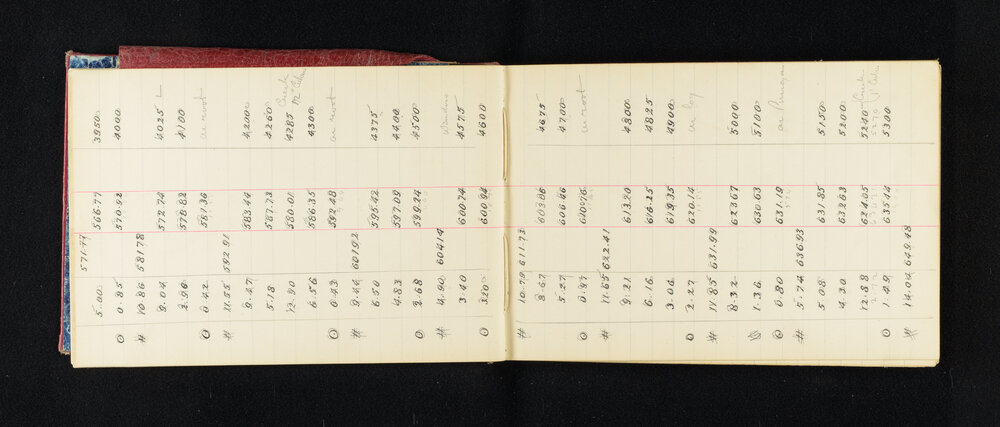 571.77
5.00 566.77 3950
⊙ 0.85 570.92 4000
# 10.86 581.78
9.04 572.74 4025 L
2.96 578.82 4100
⊙ 0.42 581.36 on root
# 11.55 592.91
9.47 583.44 4200
5.18 587.73 4260
12.90 580.01 4285 Creek
6.56 586.35 4300
⊙ 0.43 592.48 on root
# 9.44 601.92
6.50 595.42 4375
4.83 597.09 4400
⊙ 2.68 599.24 4500
# 4.90 604.14
3.40 600.74 4575
⊙ 3.20 600.94 4600
# 10.79 611.73
8.67 603.06 4675
5.27 606.46 4700
⊙ 0.97 610.76 on root
# 11.65 622.41
9.21 613.20 4800
6.16 616.25 4825
3.06 619.35 4900
⊙ 2.27 620.14 on log
# 11.85 631.99
8.32 623.67 5000
1.36 630.63 5100
⊙ 0.80 631.19 on
# 5.74 636.93
5.08 631.85 5150
4.30 632.63 5200
12.88 624.05 5240 Creek
5270
⊙ 1.49 635.44 5300
# 14.04 649.48